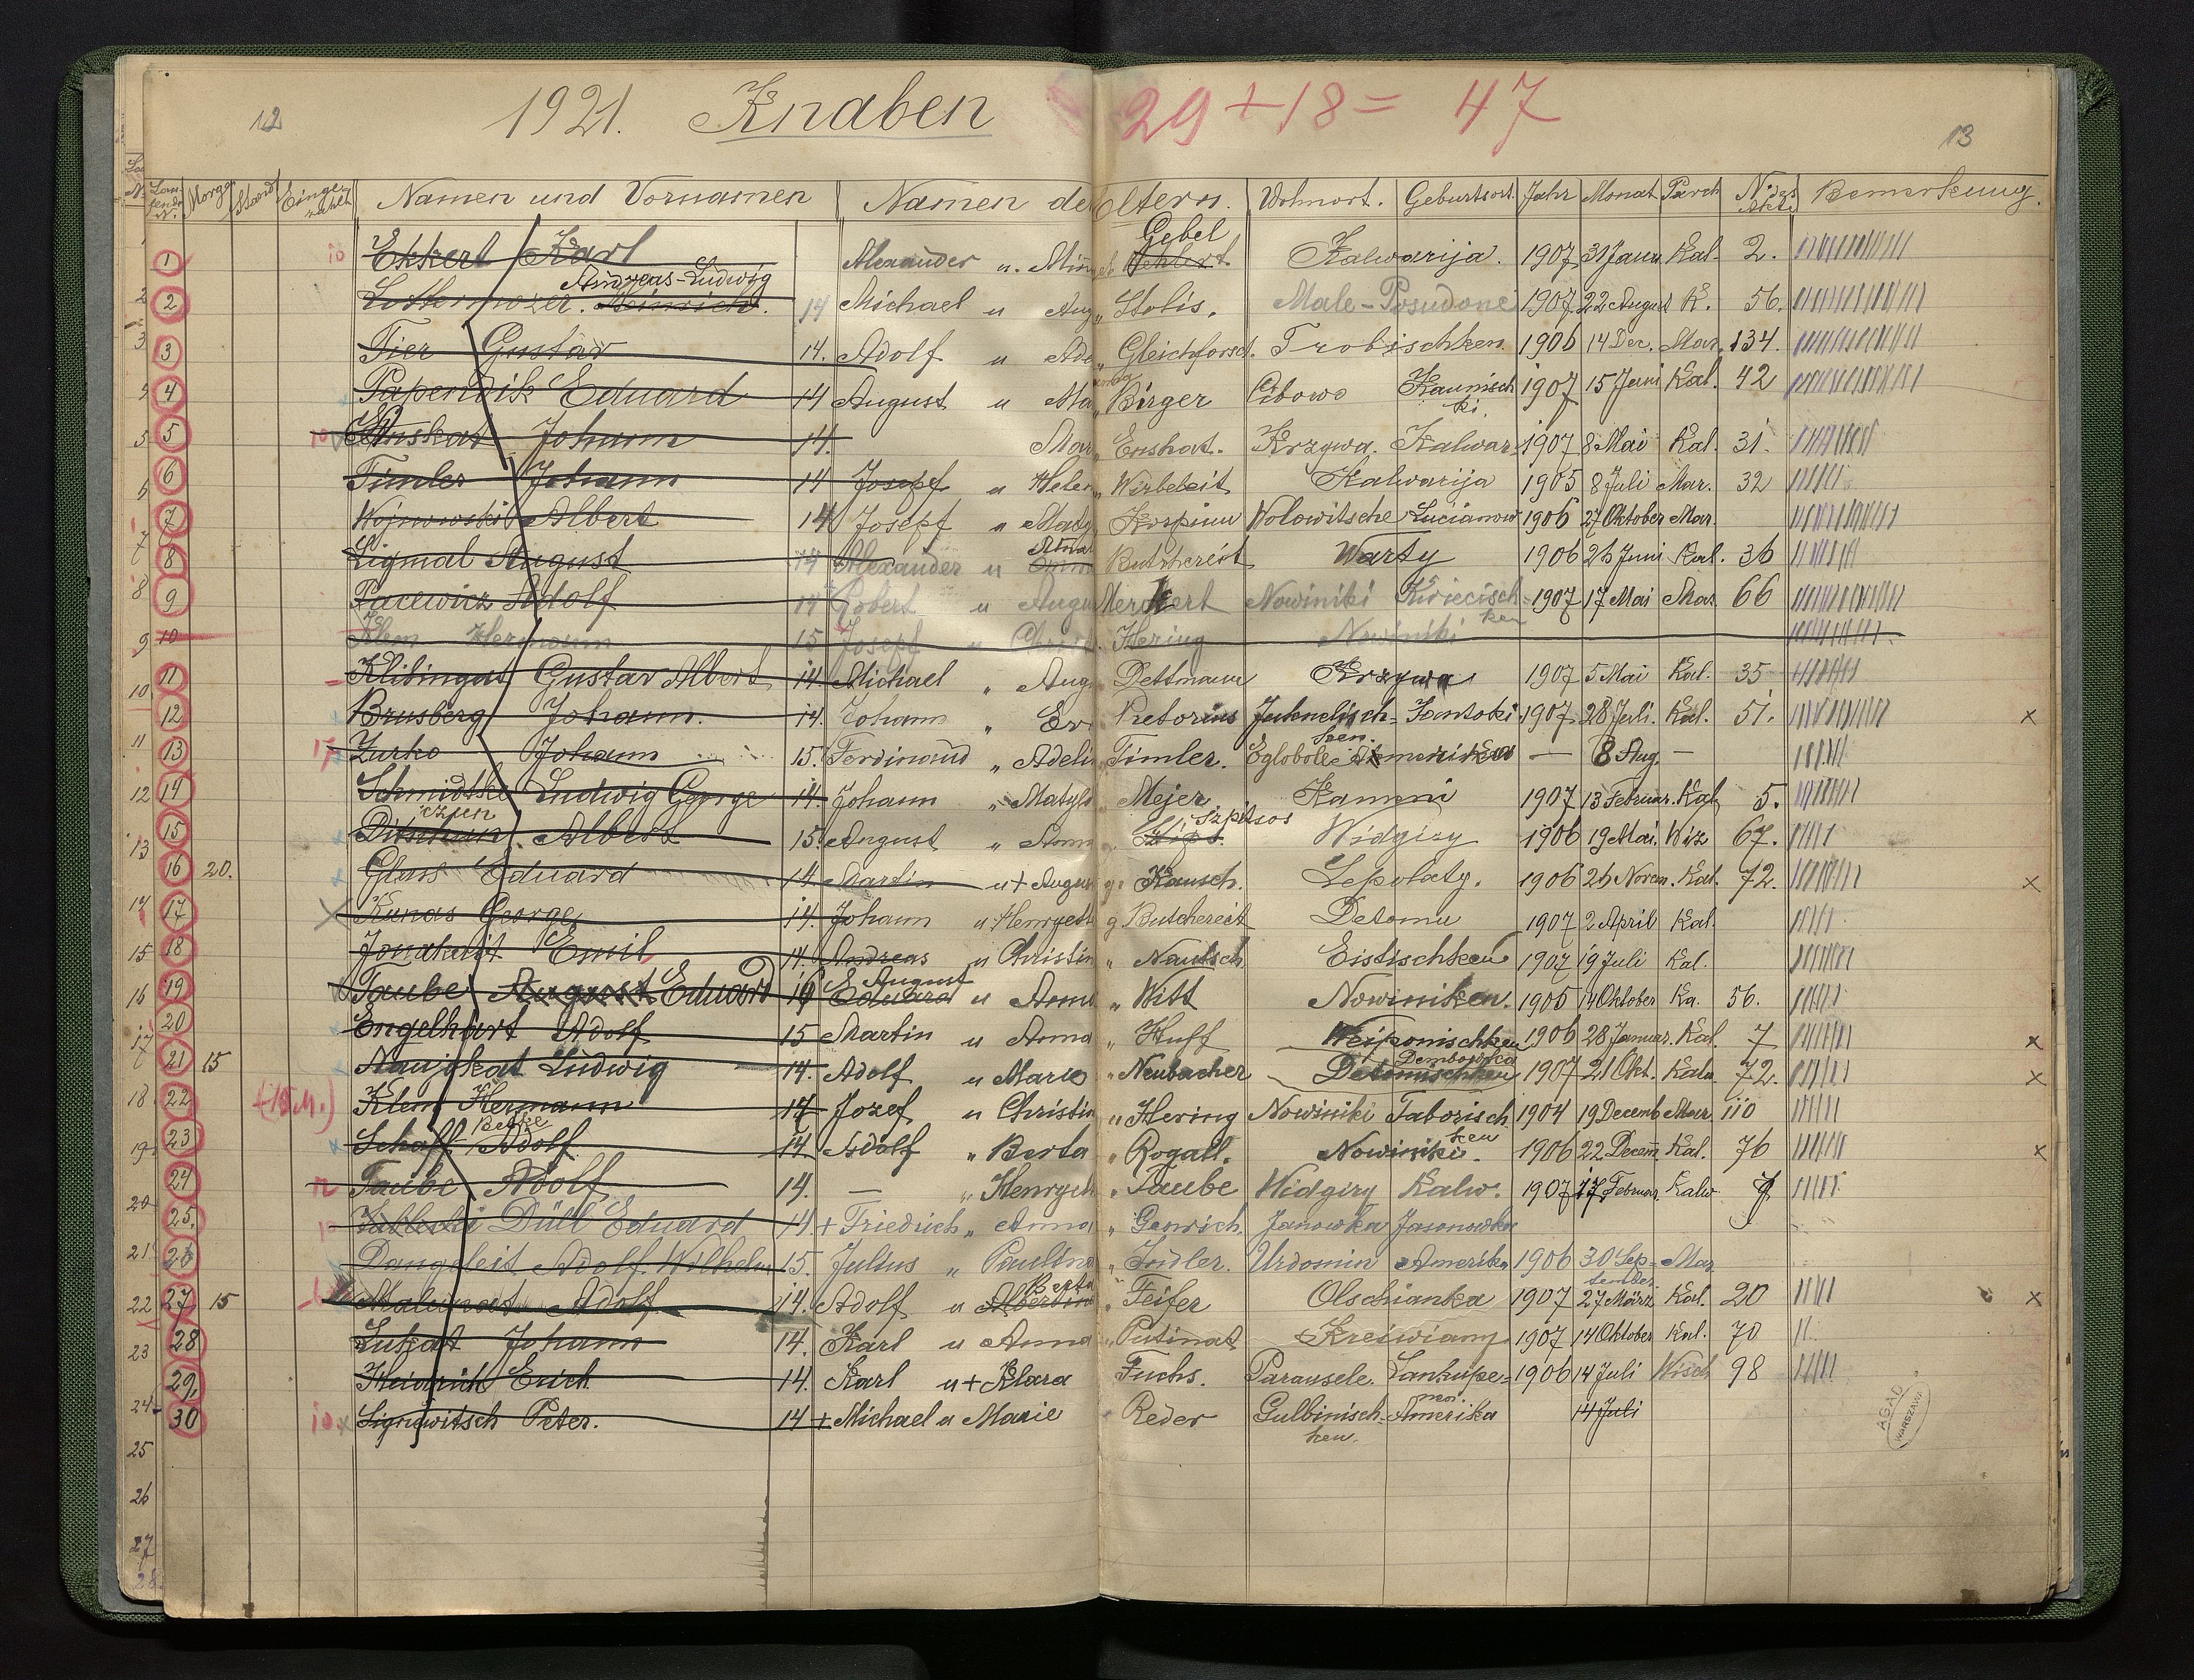 12 1921. Knaben 29 + 18 = 47 13
Laufende N. Morge Stand Eingezahlt Namen und Vornamen Namen der Eltern. Wohnort. Geburtsort. Jahr Monat Parch N. des Akts Bemerkung.
Gebel
1 10 Ekkert Karl Alexander u. Kalwarija. 1907 31 Janu. Kal. 2.
Andreas-Ludwig
2 Heinrich. 14 Michael u Aug „ Stolis. Male-Posudone 1907 22 August K. 56.
3 Tier Gustav 14. Adolf u Ade „ Trobischken 1906 14 Dec. Mar. 134.
4 Papendik Eduard 14 August u Ma „ Birger Cibowo Kaunischki. 1907 15 Juni Kal. 42
5 10 Enskat Johann 14. Mar „ Enskat. Krzywa. Kalwar. 1907 8 Mai Kal. 31.
6 Timler Johann 14 Josepf u Helen „ Wirbeleit Kalwarija 1905 8 Juli Mar. 32
7 Wojnowski Albert 14 Josepf u Maty Wolowitsche Lucianow 1906 27 Oktober Mar.
8 Ligmal August 14 Alexander u Butschereit Warty 1906 26 Juni Kal. 36
9 Pacewicz Adolf 14 Gobert u Augu Merkert Nowiniki Kirecischken 1907 17 Mai Mar. 66
10 Klem Hermann 15 Josepf u Christ. Hering Nowiniki
11 Klibingat Gustav Albert 14 Michael „ Aug „ Dettmann Krzywa 1907 5 Mai Kal. 35
12 Brusberg Johann. 14. Johann „ Er „ Pretorius Juknelischken. Santoki 1907 28 Juli. Kal. 51. x
13 Zurko Johann 15. Ferdinand „ Adeli „ Timler. Eglobole Amerika — 8 Aug. —
14 Schmidtke Ludwig George 14 Johann „ Matyld „ Mejer Kamini 1907 13 Februar. Kal. 5.
czun Szpitsos
15 Albert 15. August „ Anna Widgiry 1906 19 Mai. Wiz 67.
16 20. Glass Eduard 14. Martin u + August g. Kausch. Lepolaty. 1906 26 Novem. Kal. 72. x
17 Kunas George 14. Johann u Henryett g. Butschereit Detomu 1907 2 April Kal.
18 Jonakeit Emil 14. Andreas u Christin „ Nautsch Eistischken 1907 19 Juli Kal.
August
19 Taube August Eduard Eduard u Anna „ Witt Nowiniken. 1905 14 Oktober Ka. 56.
20 Engelhart Adolf 15 Martin u Anna „ Huff Weiponischken 1906 28 Januar. Kal. 7 x
Dembowka
21 15 Naujokat Ludwig 14. Adolf u Marie „ Neubacher Detomischken 1907 21 Okt. Kalw. 72. x
22 (15 M.) Klem Hermann 17 Jozef u Christin „ Hering Nowiniki Taborischken 1904 19 Decemb Mar. 110
23 Schaff Adolf 14 Adolf „ Berta „ Rogall. Nowiniki. 1906 22 Decem. Kal. 76 x
24 12 Taube Adolf 14. — „ Henryett „ Taube Widgiry Kalw. 1907 17 Februar. Kalw
25. Düll Eduard 14 + Friedrich „ Anna „ Genrich. Janowka Jasonowka
26 Dangeleit Adolf Wilhelm 15. Julius „ Paulina „ Indler. Urdomin Amerika 1906 30 September Mar.
Berta
27 15 Adolf 14. Adolf u Albertine „ Feifer Olschianka 1907 27 März Kal. 20 x
28 Lukat Johann 14. Karl u Anna „ Putinat Kreiwiany 1907 14 Oktober Kal. 70
29. Heidrich Erich 14. Karl u + Klara Fuchs. Parausele. 1906 14 Juli Wisch 98
30 10 Signowitsch Peter. 14 + Michael u Marie Reder Gulbinischken. Amerika 14 Juli
AGAD WARSZAWA